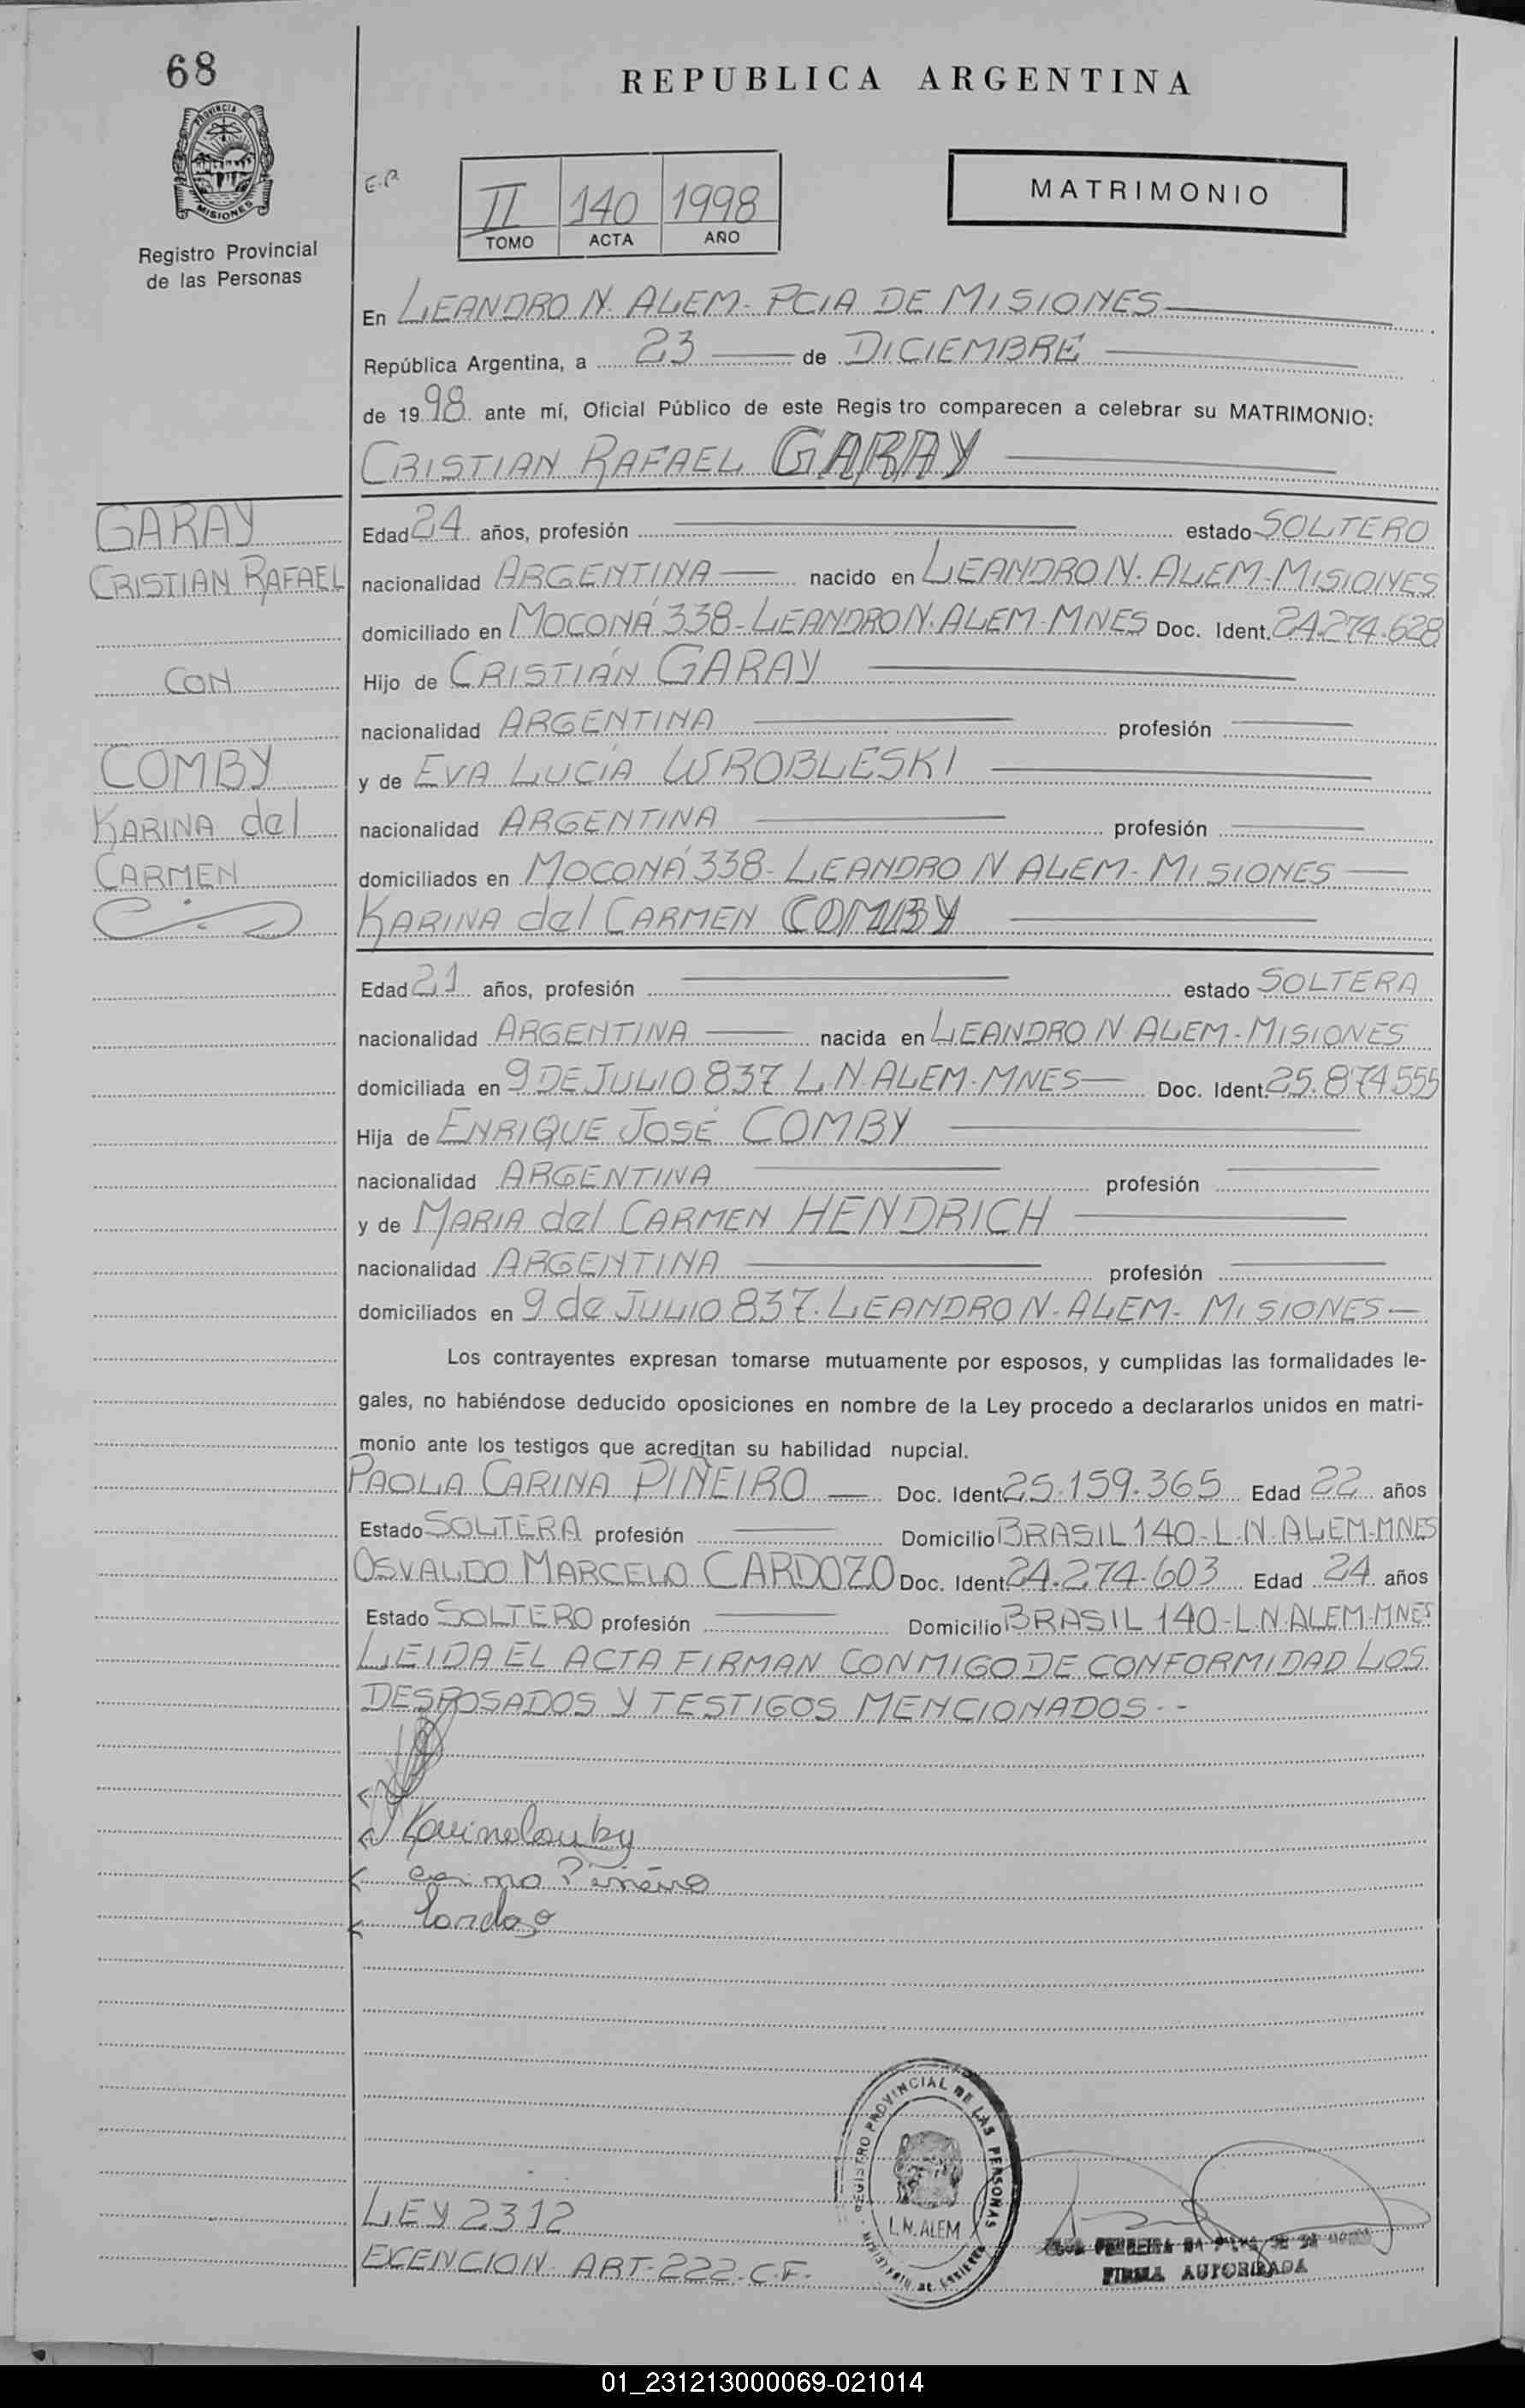 68
REPUBLICA ARGENTINA
PROVINCIA DE
MISIONES
Registro Provincial
de las Personas
E.R
II 140 1998
TOMO ACTA AÑO
MATRIMONIO
En LEANDRO N. ALEM - PCIA DE MISIONES
República Argentina, a 23 de DICIEMBRE
de 1998 ante mí, Oficial Público de este Regis tro comparecen a celebrar su MATRIMONIO:
CRISTIAN RAFAEL GARAY
GARAY
CRISTIAN RAFAEL
CON
COMBY
KARINA del
CARMEN
Edad 24 años, profesión estado SOLTERO
nacionalidad ARGENTINA nacido en LEANDRO N. ALEM-MISIONES
domiciliado en MOCONÁ 338-LEANDRO N. ALEM-MNES Doc. Ident. 24.274.628
Hijo de CRISTIÁN GARAY
nacionalidad ARGENTINA profesión
y de EVA LUCÍA WROBLESKI
nacionalidad ARGENTINA profesión
domiciliados en MOCONÁ 338-LEANDRO N ALEM-MISIONES
KARINA del CARMEN COMBY
Edad 21 años, profesión estado SOLTERA
nacionalidad ARGENTINA nacida en LEANDRO N ALEM-MISIONES
domiciliada en 9 DE JULIO 837 L.N.ALEM-MNES Doc. Ident. 25.874.555
Hija de ENRIQUE JOSÉ COMBY
nacionalidad ARGENTINA profesión
y de MARIA del CARMEN HENDRICH
nacionalidad ARGENTINA profesión
domiciliados en 9 de JULIO 837. LEANDRO N-ALEM-MISIONES
Los contrayentes expresan tomarse mutuamente por esposos, y cumplidas las formalidades le-
gales, no habiéndose deducido oposiciones en nombre de la Ley procedo a declararlos unidos en matri-
monio ante los testigos que acreditan su habilidad nupcial.
PAOLA CARINA PIÑEIRO Doc. Ident. 25.159.365 Edad 22 años
Estado SOLTERA profesión Domicilio BRASIL 140-L.N.ALEM-MNES
OSVALDO MARCELO CARDOZO Doc. Ident. 24.274.603 Edad 24 años
Estado SOLTERO profesión Domicilio BRASIL 140-L.N.ALEM-MNES
LEIDA EL ACTA FIRMAN CONMIGO DE CONFORMIDAD LOS
DESPOSADOS Y TESTIGOS MENCIONADOS--
Karina Comby
Carina Piñeiro
Cardozo
REGISTRO PROVINCIAL DE LAS PERSONAS
L.N. ALEM
MINISTERIO DE
LEY 2312
EXENCION ART-222-C.F.
FIRMA AUTORIZADA
01_231213000069-021014